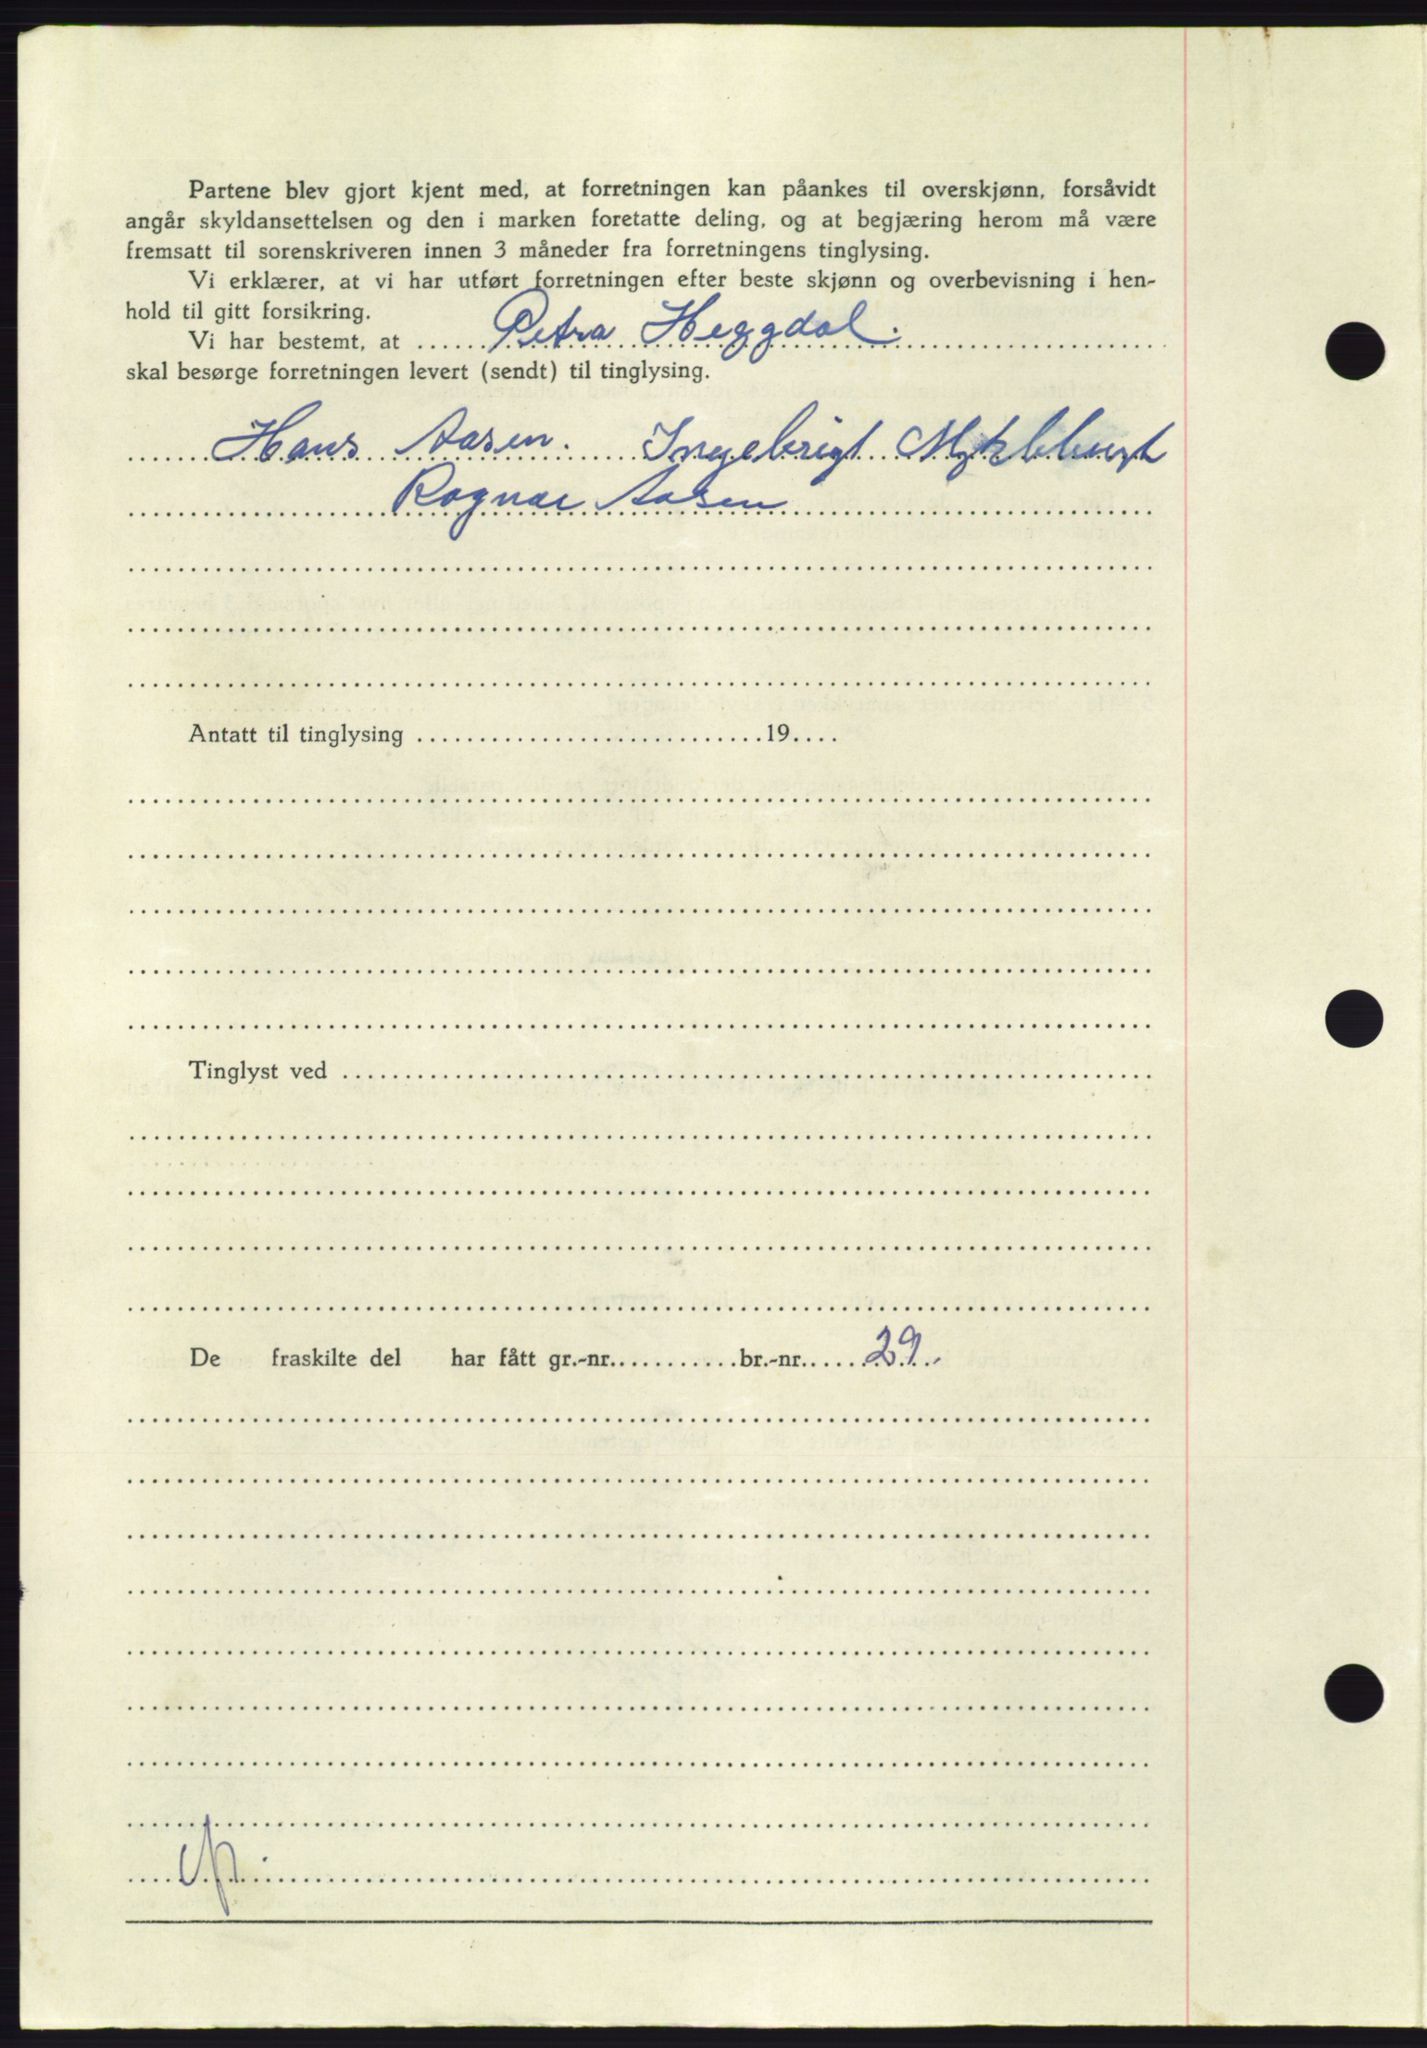 Partene blev gjort kjent med, at forretningen kan påankes til overskjønn, forsåvidt
angår skyldansettelsen og den i marken foretatte deling, og at begjæring herom må være
fremsatt til sorenskriveren innen 3 måneder fra forretningens tinglysing.
Vi erklærer, at vi har utført forretningen efter beste skjønn og overbevisning i hen-
hold til gitt forsikring.
Vi har bestemt, at Petra Heggdal.
skal besørge forretningen levert (sendt) til tinglysing.
Hans Aasen. Ingebrigt Myklebust
Ragnar Aasen
Antatt til tinglysing 19
Tinglyst ved
De fraskilte del har fått gr.-nr. br.-nr. 29.